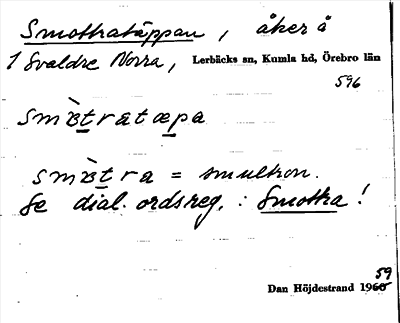 Smottratäppan, åker å
1 Svaldre Norra, Lerbäcks sn, Kumla hd, Örebro län
596
smɷ̀tratæpa
smɷ̀tra = smultron.
Se dial. ordsreg. : Smottra!
59
Dan Höjdestrand 1960